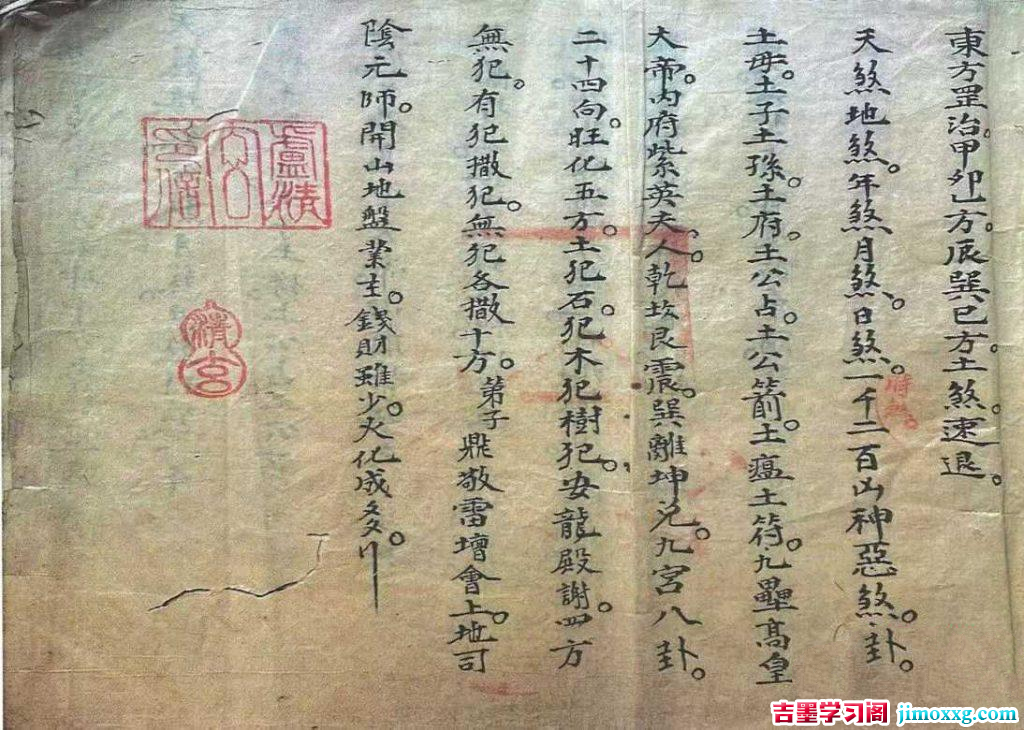 東方罡治。甲卯方。辰巽巳方。土煞速退。
天煞地煞。年煞月煞。日煞。一千二百凶神惡煞。卦。
土母。土子土孫。土府。土公占。土公箭。土瘟土符。九壘髙皇
大帝。内府紫英夫人。乾坎艮震。巽離坤兑。九宮八卦。
二十四向。旺化五方。土犯石犯木犯樹犯。安龍殿謝。四方
無犯。有犯撒犯。無犯各撒十方。弟子鼎敬雷壇會上。地司
陰元師。開山地盤業主。錢財雖少。火化成多。
盧清
印信
清玄
吉墨学习阁 jimoxxg.com